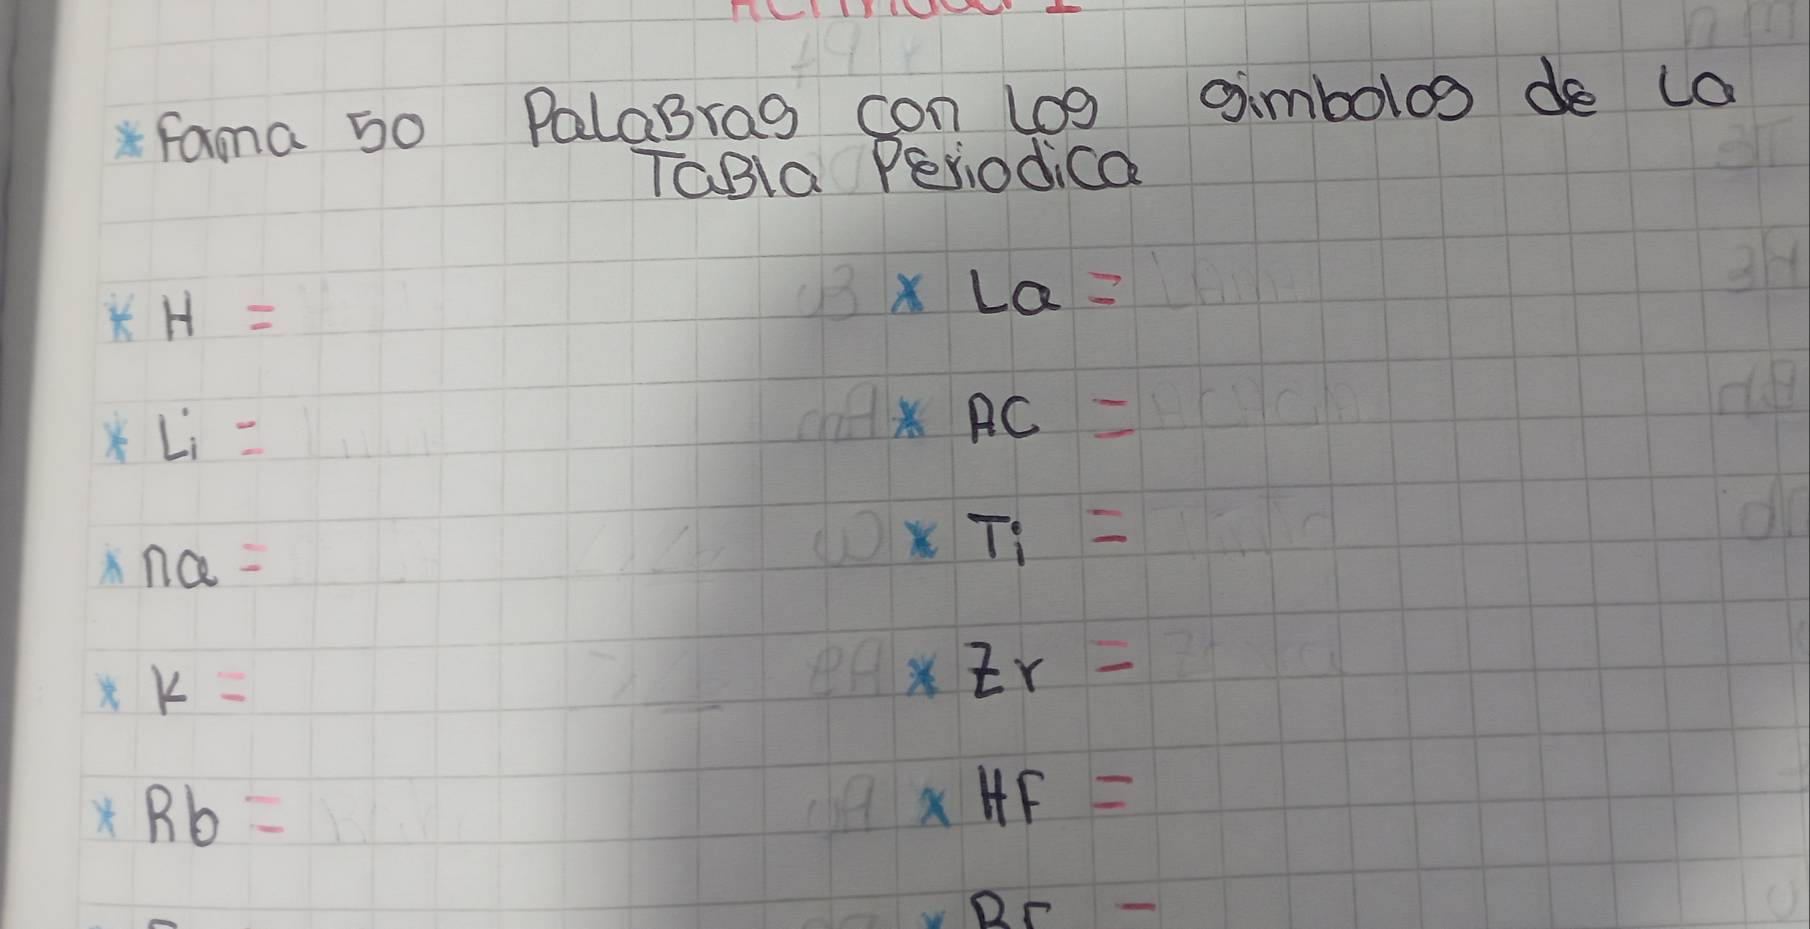 * Fama 50 PalaBras con los simbolos de la
TaBla Periodica
* H =
* La =
* Li =
* AC =
* na =
* Ti =
* K =
* Zr =
* Rb =
* HF =